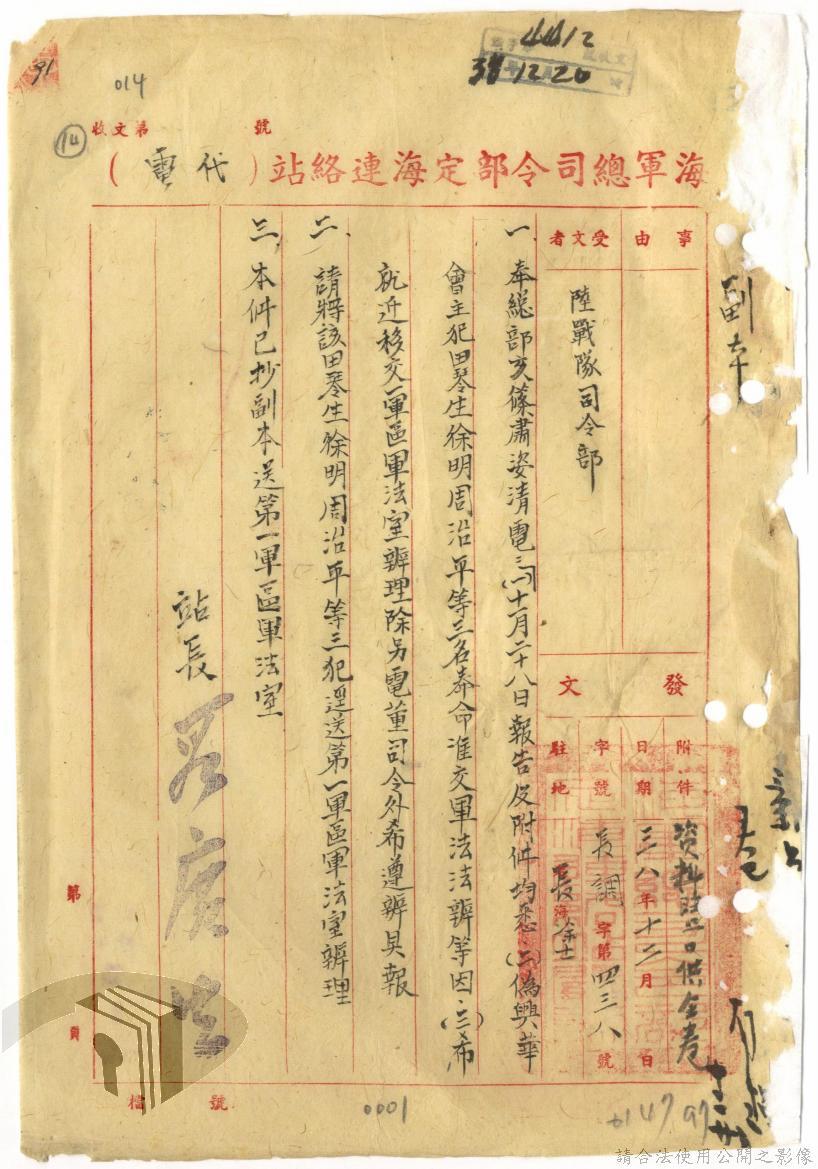 4412
38 12 20
91
014
14
收文第 號
海軍總司令部定海連絡站(代電)
事由
受文者
陸戰隊司令部
副本
發文
附件
資料
口供全卷
日期
三八年十二月 日
字號
長調字第四三八號
駐地
長
一、奉總部亥篠肅姿清電三(一)十一月二十八日報告及附件均悉(二)偽興華
會主犯田琴生徐明周治平等三名奉命准交軍法法辦等因(三)希
就近移交一軍區軍法室辦理除另電董司令外希遵辦具報
二、請將該田琴生徐明周治平等三犯逕送第一軍區軍法室辦理
三、本件已抄副本送第一軍區軍法室
站長
第 頁
檔 號
0001
請合法使用公開之影像